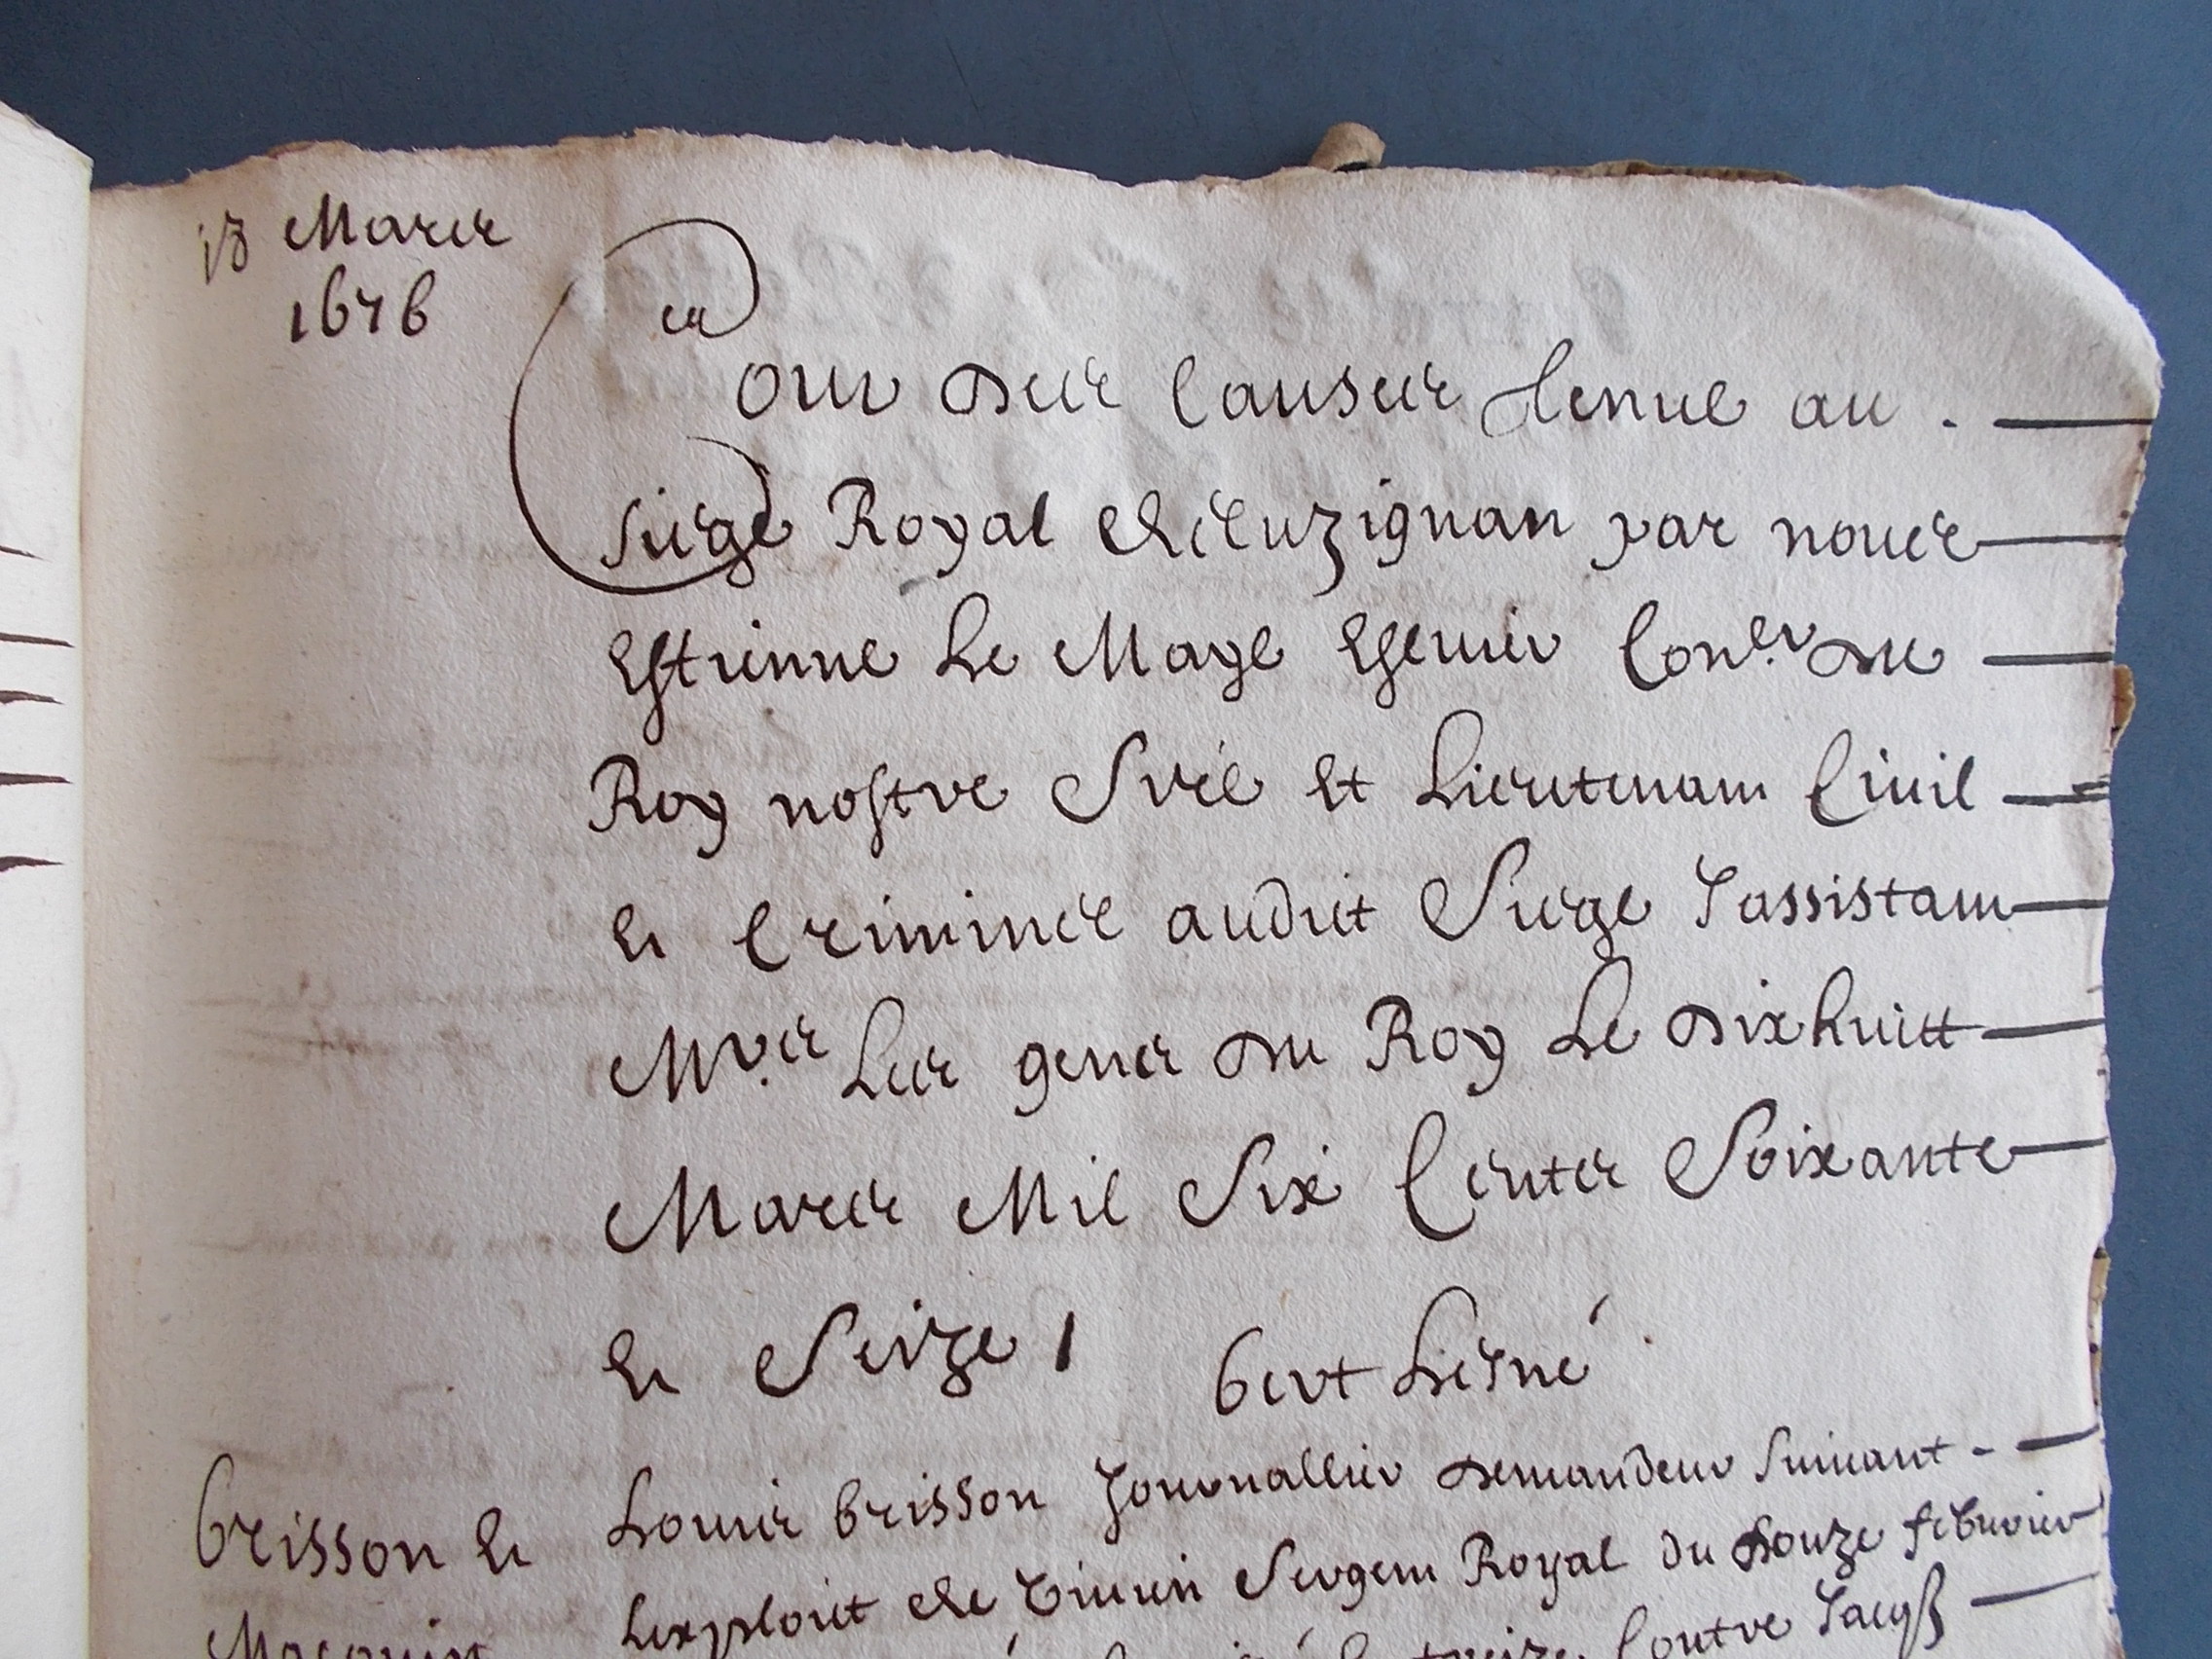 18 Mars
1676
en
Cour des Causes tenue au .
Siege Royal de Luzignan par nous
Estienne Le Mage Escuier Con.er du
Roy nostre Sire et Lieutenant Civil
et Criminel audit Siege y assistant
M.rs Les gens du Roy Le dix huitt
Mars Mil Six Cents Soixante
et Seize /
Brisson et
Louis Brisson Journallier demandeur suivant -
Lexploit de Sergent Royal du douze febvrier
Contre Jacq